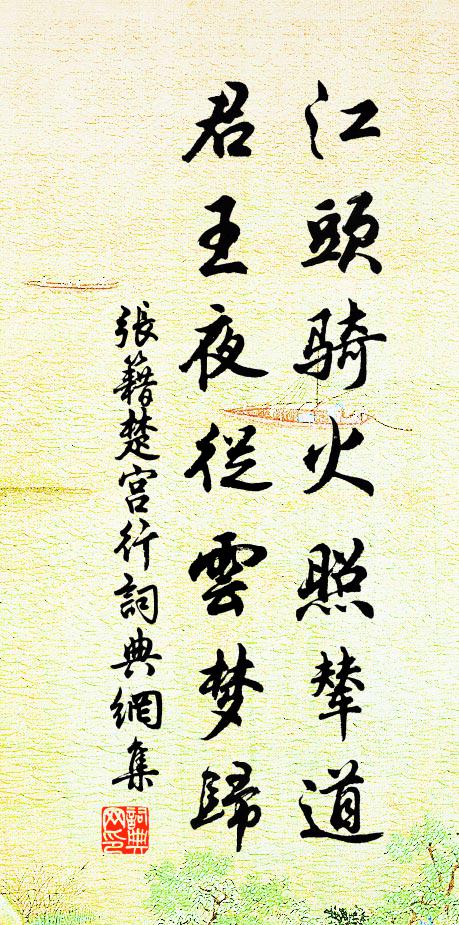 江頭騎火照輦道
君王夜從雲梦歸
張籍楚宫行詞典網集
詞典網印